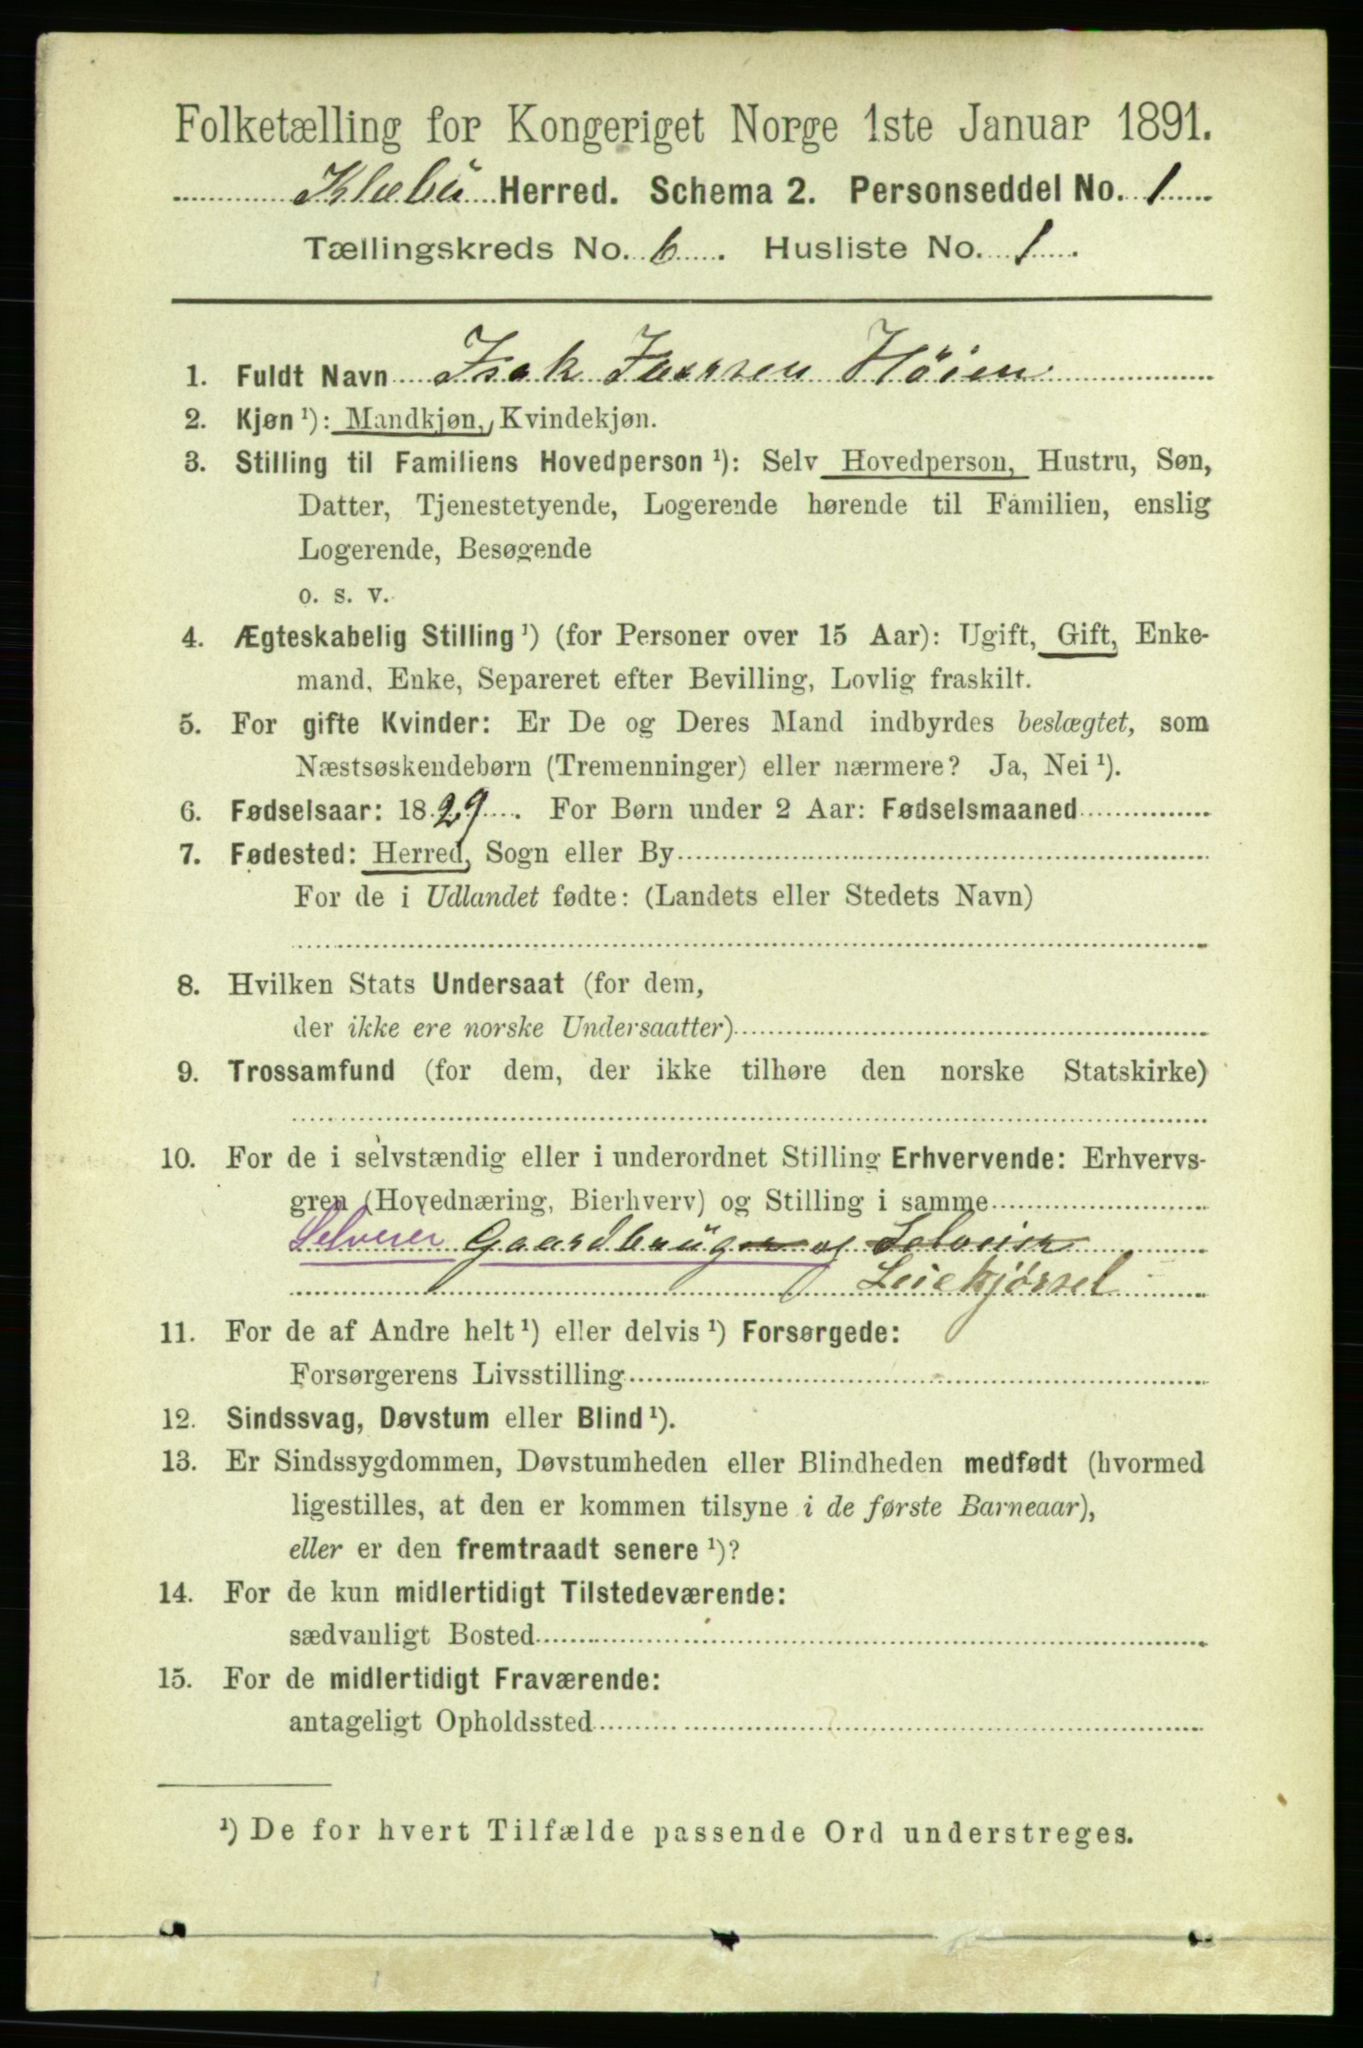 Folketælling for Kongeriget Norge 1ste Januar 1891.
Klæbü Herred. Schema 2. Personseddel No. 1
Tællingskreds No. 6. Husliste No. 1.
1. Fuldt Navn Isak Iversen Höien
2. Kjøn ¹): Mandkjøn, Kvindekjøn.
3. Stilling til Familiens Hovedperson ¹): Selv Hovedperson, Hustru, Søn,
Datter, Tjenestetyende, Logerende hørende til Familien, enslig
Logerende, Besøgende
o. s. v.
4. Ægteskabelig Stilling ¹) (for Personer over 15 Aar): Ugift, Gift, Enke-
mand, Enke, Separeret efter Bevilling, Lovlig fraskilt.
5. For gifte Kvinder: Er De og Deres Mand indbyrdes beslægtet, som
Næstsøskendebørn (Tremenninger) eller nærmere? Ja, Nei ¹).
6. Fødselsaar: 1829. For Børn under 2 Aar: Fødselsmaaned
7. Fødested: Herred, Sogn eller By
For de i Udlandet fødte: (Landets eller Stedets Navn)
8. Hvilken Stats Undersaat (for dem,
der ikke ere norske Undersaatter)
9. Trossamfund (for dem, der ikke tilhøre den norske Statskirke)
10. For de i selvstændig eller i underordnet Stilling Erhvervende: Erhvervs-
gren (Hovednæring, Bierhverv) og Stilling i samme
Selveier Gaardbrüger og Selveier
Leiekjørsel
11. For de af Andre helt ¹) eller delvis ¹) Forsørgede:
Forsørgerens Livsstilling
12. Sindssvag, Døvstum eller Blind ¹).
13. Er Sindssygdommen, Døvstumheden eller Blindheden medfødt (hvormed
ligestilles, at den er kommen tilsyne i de første Barneaar),
eller er den fremtraadt senere ¹)?
14. For de kun midlertidigt Tilstedeværende:
sædvanligt Bosted
15. For de midlertidigt Fraværende:
antageligt Opholdssted
¹) De for hvert Tilfælde passende Ord understreges.